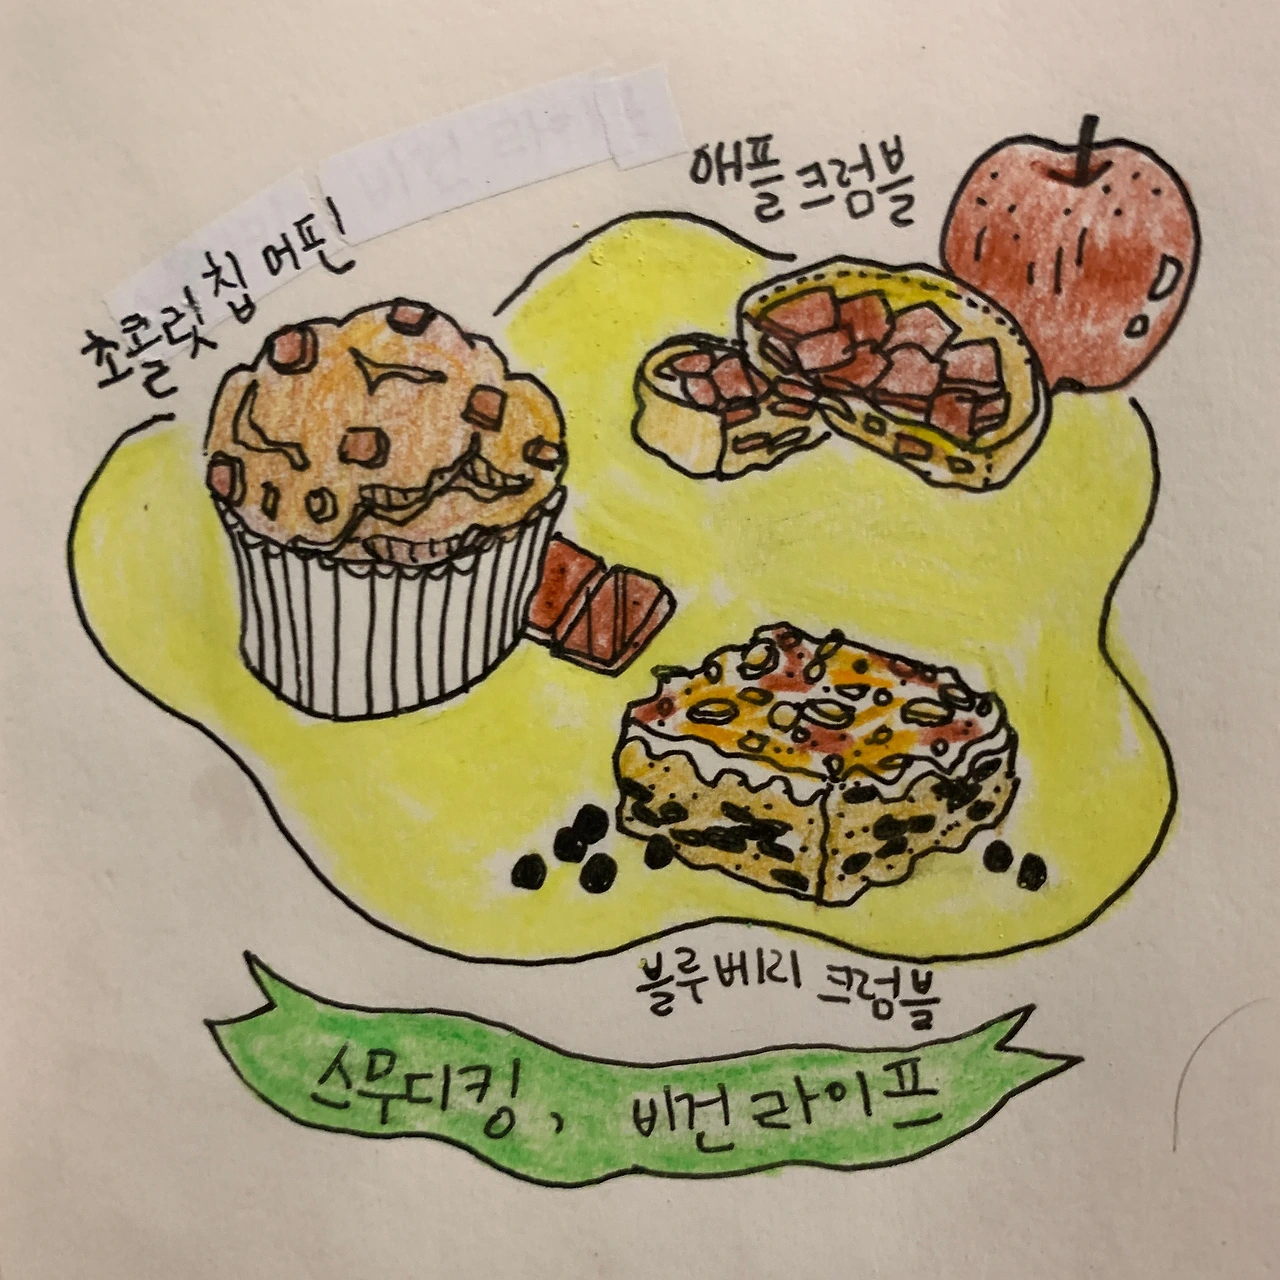 초콜릿 칩 머핀
애플 크럼블
블루베리 크럼블
스무디킹, 비건 라이프